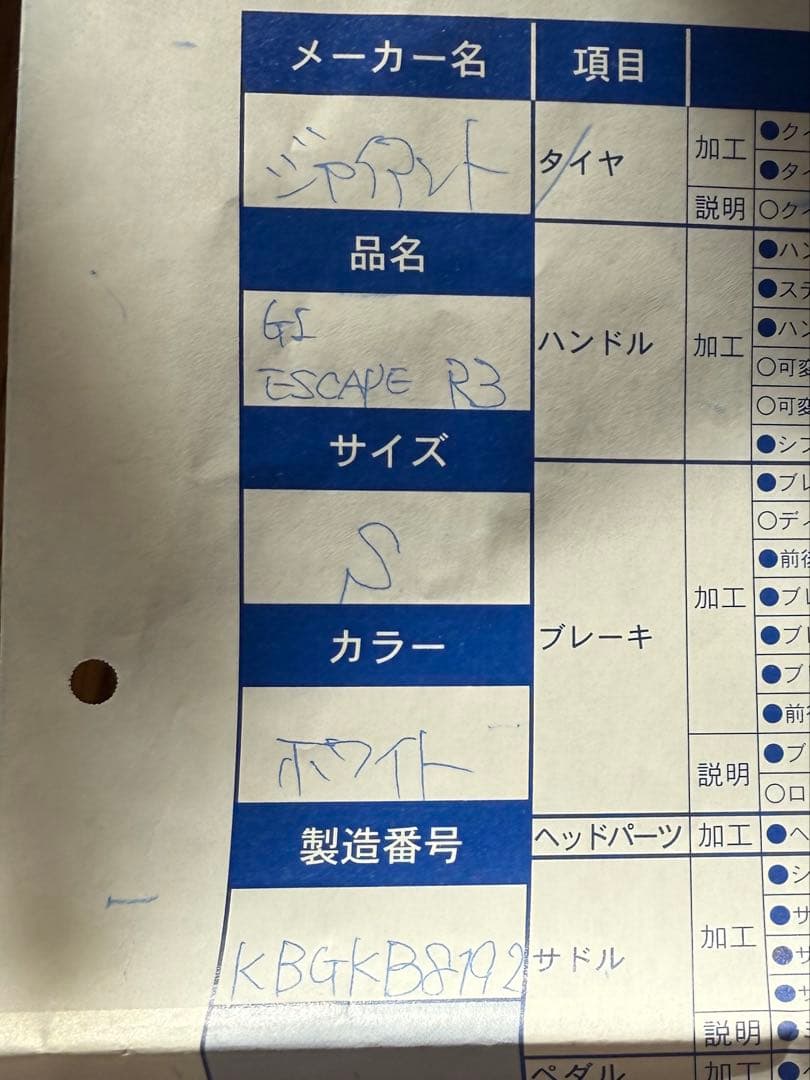 メーカー名 項目
ジャイアント タイヤ 加工 ●クイ
●タイ
説明 ○クイ
品名 ハンドル 加工 ●ハン
●ステ
GI ●ハン
ESCAPE R3 ○可変
○可変
サイズ ●シフ
S ブレーキ 加工 ●ブレ
○ディ
●前後
●ブレ
カラー ●ブレ
●ブ
ホワイト ●前後
説明 ●ブ
○ロ
製造番号 ヘッドパーツ 加工 ●ヘ
KBGKB8192 サドル 加工 ●シ
●サ
●サ
●サ
説明
ペダル 加工